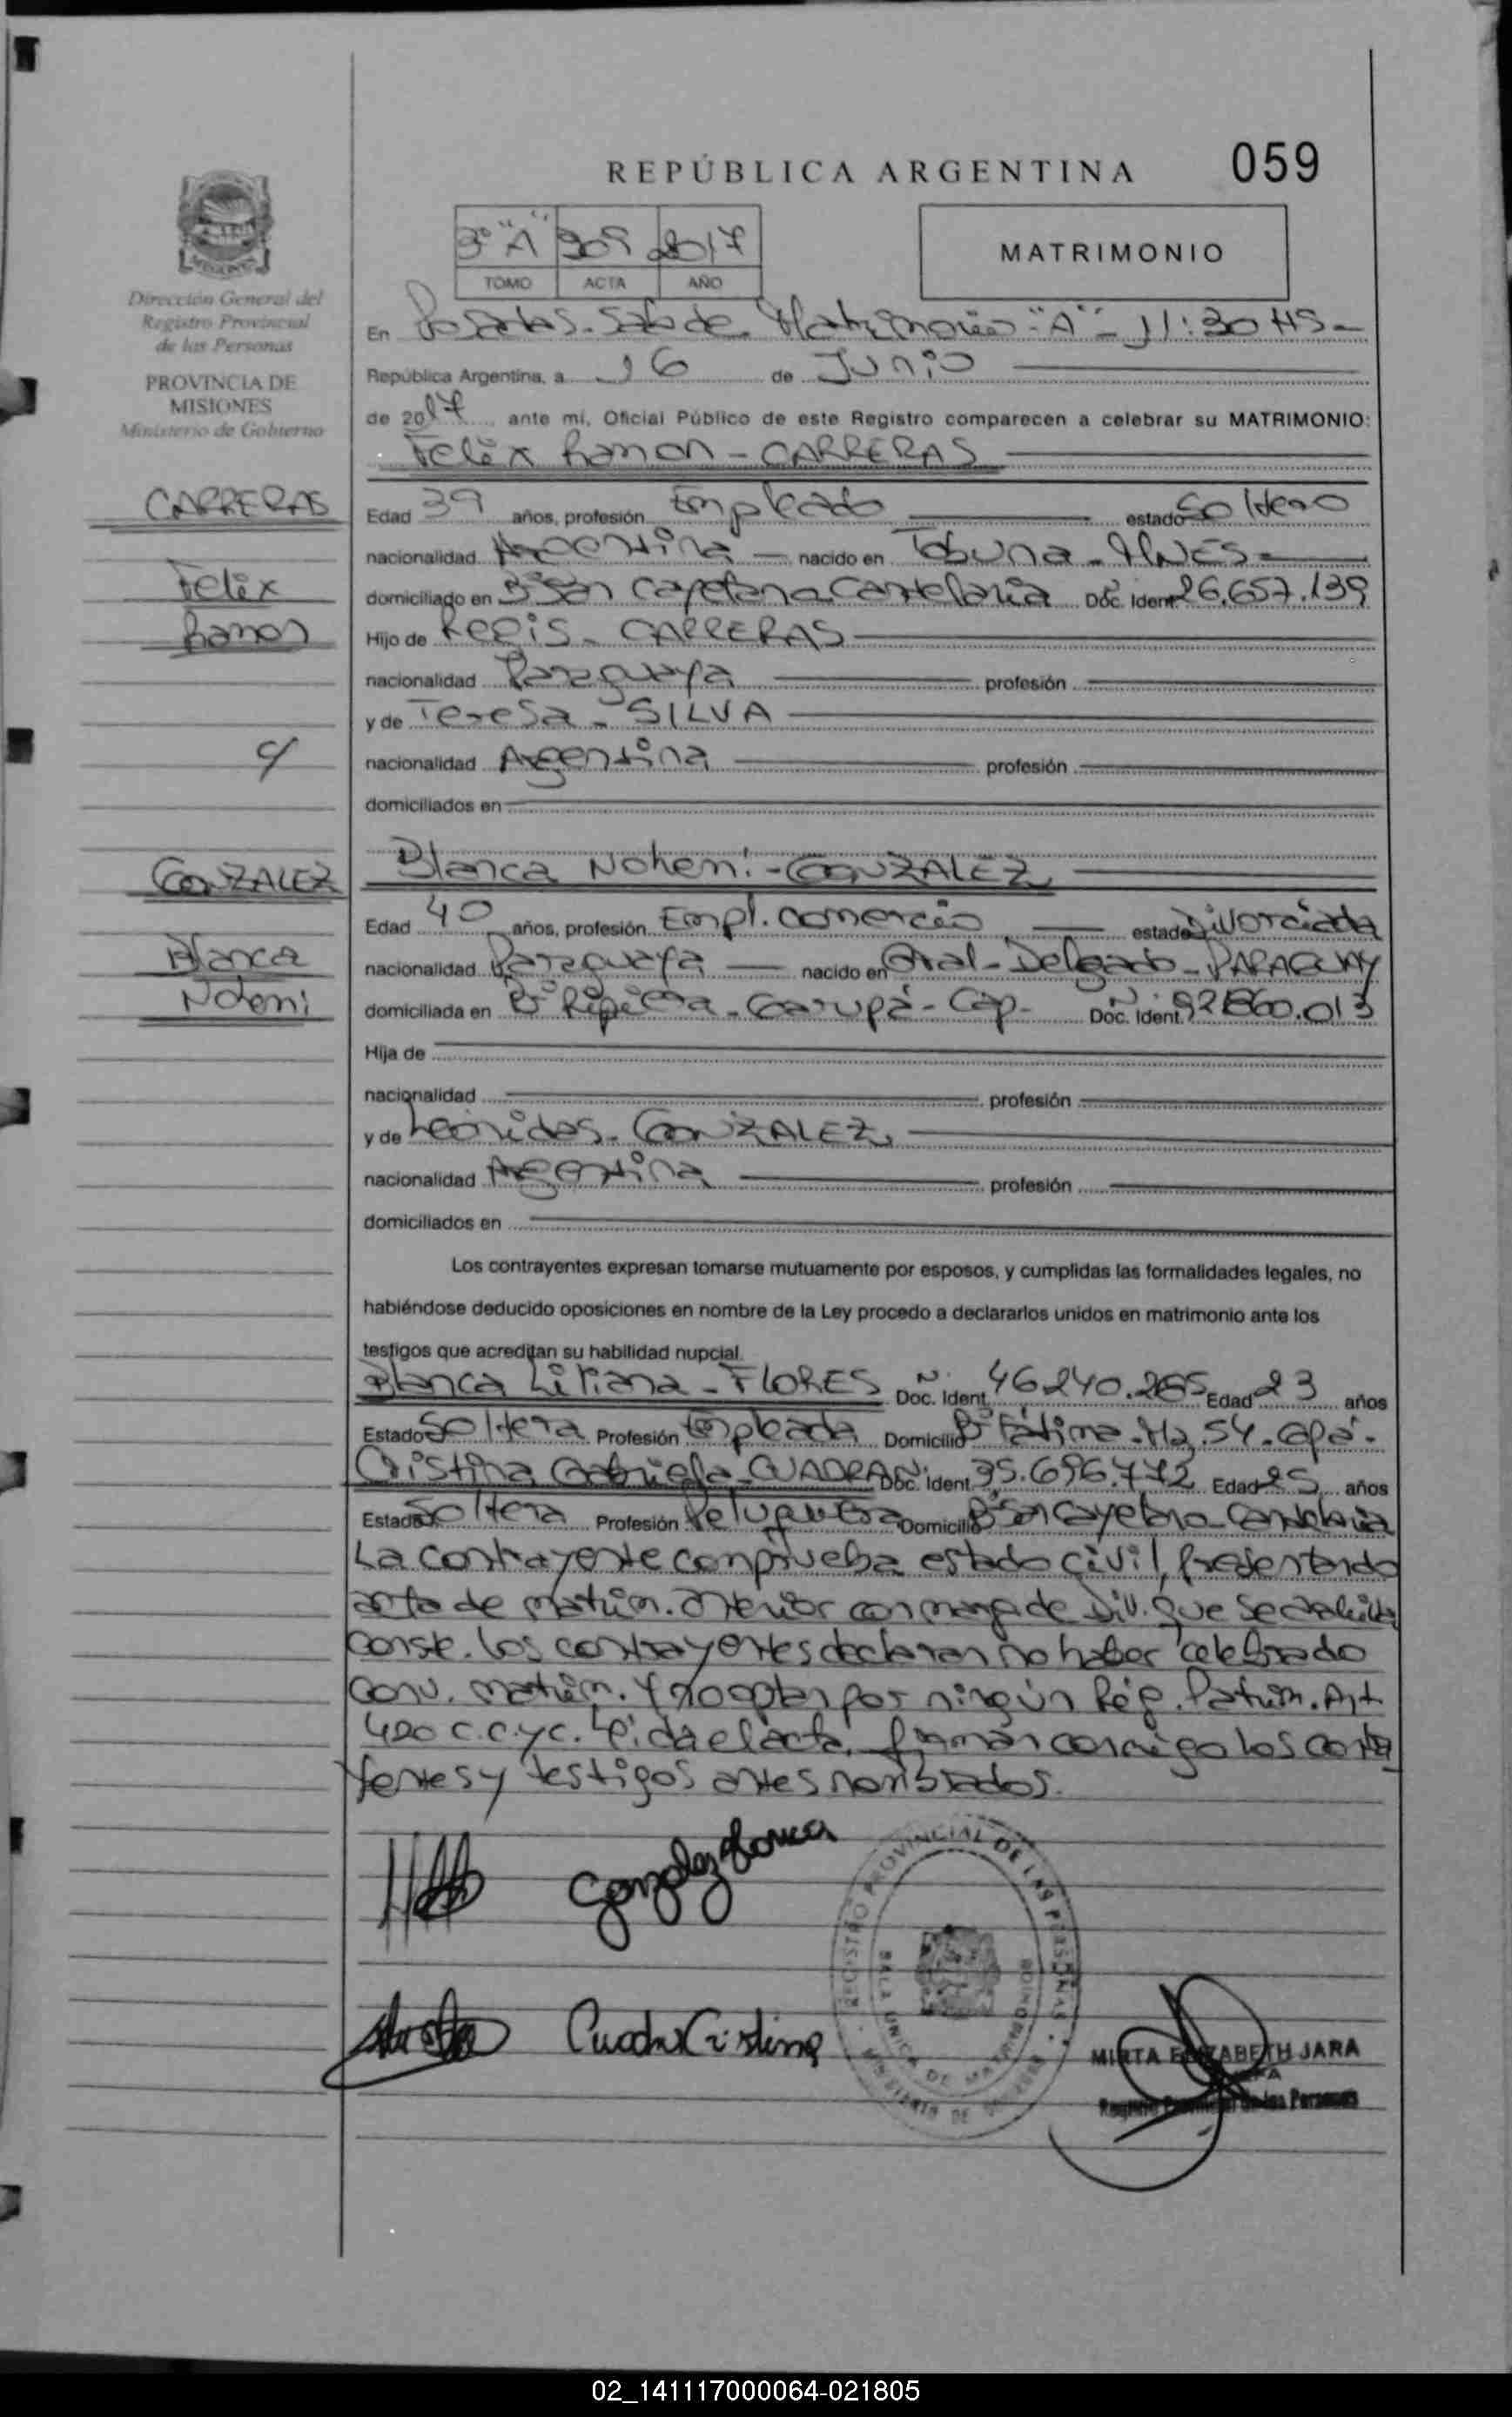 REPÚBLICA ARGENTINA 059
3º "A" 909 2017
TOMO ACTA AÑO
MATRIMONIO
Dirección General del
Registro Provincial
de las Personas
PROVINCIA DE
MISIONES
Ministerio de Gobierno
CARRERAS
Felix
Ramon
c/
GONZALEZ
Blanca
Nohemi
En Posadas. Sala de Matrimonios "A" - 11:30 HS -
República Argentina, a 16 de Junio
de 2017 ante mi, Oficial Público de este Registro comparecen a celebrar su MATRIMONIO:
Felix Ramon - CARRERAS
Edad 39 años, profesión Empleado estado Soltero
nacionalidad Argentina nacido en Tobuna - MNES -
domiciliado en Bº San Cayetano. Candelaria Doc. Ident. Nº 26.657.139
Hijo de Regis - CARRERAS
nacionalidad Paraguaya profesión
y de Teresa - SILVA
nacionalidad Argentina profesión
domiciliados en
Blanca Nohemi - GONZALEZ
Edad 40 años, profesión Empl. comercio estado Divorciada
nacionalidad Paraguaya nacido en Gral - Delgado - PARAGUAY
domiciliada en Bº - Garupá - Cap. Doc. Ident. Nº 92860.013
Hija de
nacionalidad profesión
y de Leonidas - GONZALEZ
nacionalidad Argentina profesión
domiciliados en
Los contrayentes expresan tomarse mutuamente por esposos, y cumplidas las formalidades legales, no
habiéndose deducido oposiciones en nombre de la Ley procedo a declararlos unidos en matrimonio ante los
testigos que acreditan su habilidad nupcial.
Blanca Liliana - FLORES Doc. Ident. Nº 46240.265 Edad 23 años
Estado Soltera Profesión Empleada Domicilio Bº Fátima - Mz. 54 -
Cristina Gabriela - CUADRA Doc. Ident. Nº 35.696.772 Edad 25 años
Estado Soltera Profesión Peluquera Domicilio Bº San Cayetano - Candelaria
La contrayente comprueba estado civil, presentando
acta de matrim. anterior con marg. de Div. que se
conste. los contrayentes declaran no haber celebrado
conv. matrim. y no optan por ningún Rég. Patrim. Art.
420 C.C.yC. Leida el acta, firman conmigo los contra
yentes y testigos antes nombrados.
Gonzalez Blanca
Cuadra Cristina
REGISTRO PROVINCIAL DE LAS PERSONAS
SALA UNICA DE MATRIMONIOS
MINISTERIO DE GOBIERNO
MIRTA ELIZABETH JARA
JEFA
Registro Provincial de las Personas
02_141117000064-021805